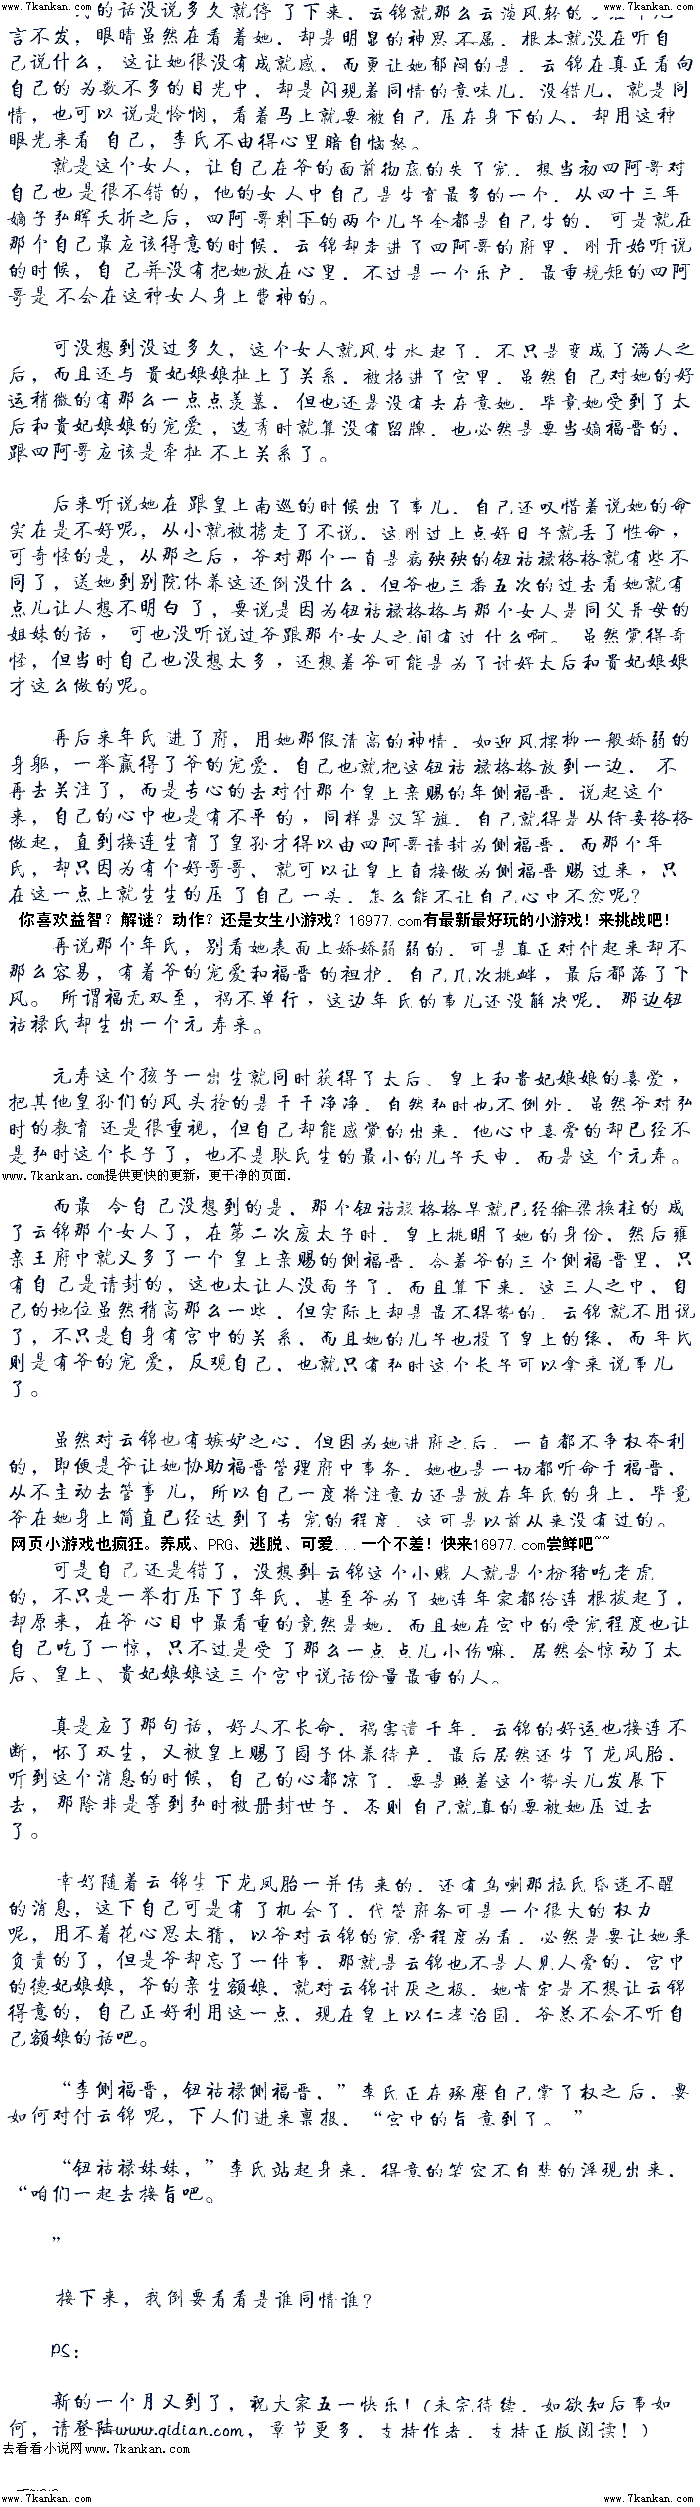 www.7kankan.com www.7kankan.com
的话没说多久就停了下来，云锦就那么云淡风轻的
言不发，眼睛虽然在看着她，却是明显的神思不属，根本就没在听自
己说什么，这让她很没有成就感，而更让她郁闷的是，云锦在真正看向
自己的为数不多的目光中，却是闪现着同情的意味儿，没错儿，就是同
情，也可以说是怜悯，看着马上就要被自己压在身下的人，却用这种
眼光来看自己，李氏不由得心里暗自恼怒。
就是这个女人，让自己在爷的面前彻底的失了宠，想当初四阿哥对
自己也是很不错的，他的女人中自己是生育最多的一个，从四十三年
嫡子弘晖夭折之后，四阿哥剩下的两个儿子全都是自己生的，可是就在
那个自己最应该得意的时候，云锦却走进了四阿哥的府里，刚开始听说
的时候，自己并没有把她放在心里，不过是一个乐户，最重规矩的四阿
哥是不会在这种女人身上费神的。
可没想到没过多久，这个女人就风生水起了，不只是变成了满人之
后，而且还与贵妃娘娘扯上了关系，被招进了宫里，虽然自己对她的好
运稍微的有那么一点点羡慕，但也还是没有去在意她，毕竟她受到了太
后和贵妃娘娘的宠爱，选秀时就算没有留牌，也必然是要当嫡福晋的，
跟四阿哥应该是牵扯不上关系了。
后来听说她在跟皇上南巡的时候出了事儿，自己还叹惜着说她的命
实在是不好呢，从小就被掳走了不说，这刚过上点好日子就丢了性命，
可奇怪的是，从那之后，爷对那个一直是病殃殃的钮祜禄格格就有些不
同了，送她到别院休养这还倒没什么，但爷也三番五次的过去看她就有
点儿让人想不明白了，要说是因为钮祜禄格格与那个女人是同父异母的
姐妹的话，可也没听说过爷跟那个女人之间有过什么啊。虽然觉得奇
怪，但当时自己也没想太多，还想着爷可能是为了讨好太后和贵妃娘娘
才这么做的呢。
再后来年氏进了府，用她那假清高的神情，如迎风摆柳一般娇弱的
身躯，一举赢得了爷的宠爱，自己也就把这钮祜禄格格放到一边，不
再去关注了，而是专心的去对付那个皇上亲赐的年侧福晋，说起这个
来，自己的心中也是有不平的，同样是汉军旗，自己就得是从侍妾格格
做起，直到接连生育了皇孙才得以由四阿哥请封为侧福晋，而那个年
氏，却只因为有个好哥哥，就可以让皇上直接做为侧福晋赐过来，只
在这一点上就生生的压了自己一头，怎么能不让自己心中不忿呢？
你喜欢益智？解谜？动作？还是女生小游戏？16977.com有最新最好玩的小游戏！来挑战吧！
再说那个年氏，别看她表面上娇娇弱弱的，可是真正对付起来却不
那么容易，有着爷的宠爱和福晋的袒护，自己几次挑衅，最后都落了下
风。所谓福无双至，祸不单行，这边年氏的事儿还没解决呢，那边钮
祜禄氏却生出一个元寿来。
元寿这个孩子一出生就同时获得了太后、皇上和贵妃娘娘的喜爱，
把其他皇孙们的风头抢的是干干净净，自然弘时也不例外，虽然爷对弘
时的教育还是很重视，但自己却能感觉的出来，他心中喜爱的却已经不
是弘时这个长子了，也不是耿氏生的最小的儿子天申，而是这个元寿。
www.7kankan.com提供更快的更新，更干净的页面.
而最令自己没想到的是，那个钮祜禄格格早就已经偷梁换柱的成
了云锦那个女人了，在第二次废太子时，皇上挑明了她的身份，然后雍
亲王府中就又多了一个皇上亲赐的侧福晋，合着爷的三个侧福晋里，只
有自己是请封的，这也太让人没面子了，而且算下来，这三人之中，自
己的地位虽然稍高那么一些，但实际上却是最不得势的，云锦就不用说
了，不只是自身有宫中的关系，而且她的儿子也投了皇上的缘，而年氏
则是有爷的宠爱，反观自己，也就只有弘时这个长子可以拿来说事儿
了。
虽然对云锦也有嫉妒之心，但因为她进府之后，一直都不争权夺利
的，即便是爷让她协助福晋管理府中事务，她也是一切都听命于福晋，
从不主动去管事儿，所以自己一度将注意力还是放在年氏的身上，毕竟
爷在她身上简直已经达到了专宠的程度，这可是以前从来没有过的。
网页小游戏也疯狂。养成、PRG、逃脱、可爱...一个不差！快来16977.com尝鲜吧~~
可是自己还是错了，没想到云锦这个小贱人就是个扮猪吃老虎
的，不只是一举打压下了年氏，甚至爷为了她连年家都给连根拔起了，
却原来，在爷心目中最看重的竟然是她，而且她在宫中的受宠程度也让
自己吃了一惊，只不过是受了那么一点点儿小伤嘛，居然会惊动了太
后、皇上、贵妃娘娘这三个宫中说话份量最重的人。
真是应了那句话，好人不长命，祸害遗千年，云锦的好运也接连不
断，怀了双生，又被皇上赐了园子休养待产，最后居然还生了龙凤胎，
听到这个消息的时候，自己的心都凉了，要是照着这个势头儿发展下
去，那除非是等到弘时被册封世子，否则自己就真的要被她压过去
了。
幸好随着云锦生下龙凤胎一并传来的，还有乌喇那拉氏昏迷不醒
的消息，这下自己可是有了机会了，代管府务可是一个很大的权力
呢，用不着花心思太猜，以爷对云锦的宠爱程度为看，必然是要让她来
负责的了，但是爷却忘了一件事，那就是云锦也不是人见人爱的，宫中
的德妃娘娘，爷的亲生额娘，就对云锦讨厌之极，她肯定是不想让云锦
得意的，自己正好利用这一点，现在皇上以仁孝治国，爷总不会不听自
己额娘的话吧。
“李侧福晋，钮祜禄侧福晋，”李氏正在琢磨自己掌了权之后，要
如何对付云锦呢，下人们进来禀报，“宫中的旨意到了。”
“钮祜禄妹妹，”李氏站起身来，得意的笑容不自禁的浮现出来，
“咱们一起去接旨吧。
”
接下来，我倒要看看是谁同情谁？
PS：
新的一个月又到了，祝大家五一快乐！（未完待续，如欲知后事如
何，请登陆www.qidian.com，章节更多，支持作者，支持正版阅读！）
去看看小说网www.7kankan.com
www.7kankan.com www.7kankan.com